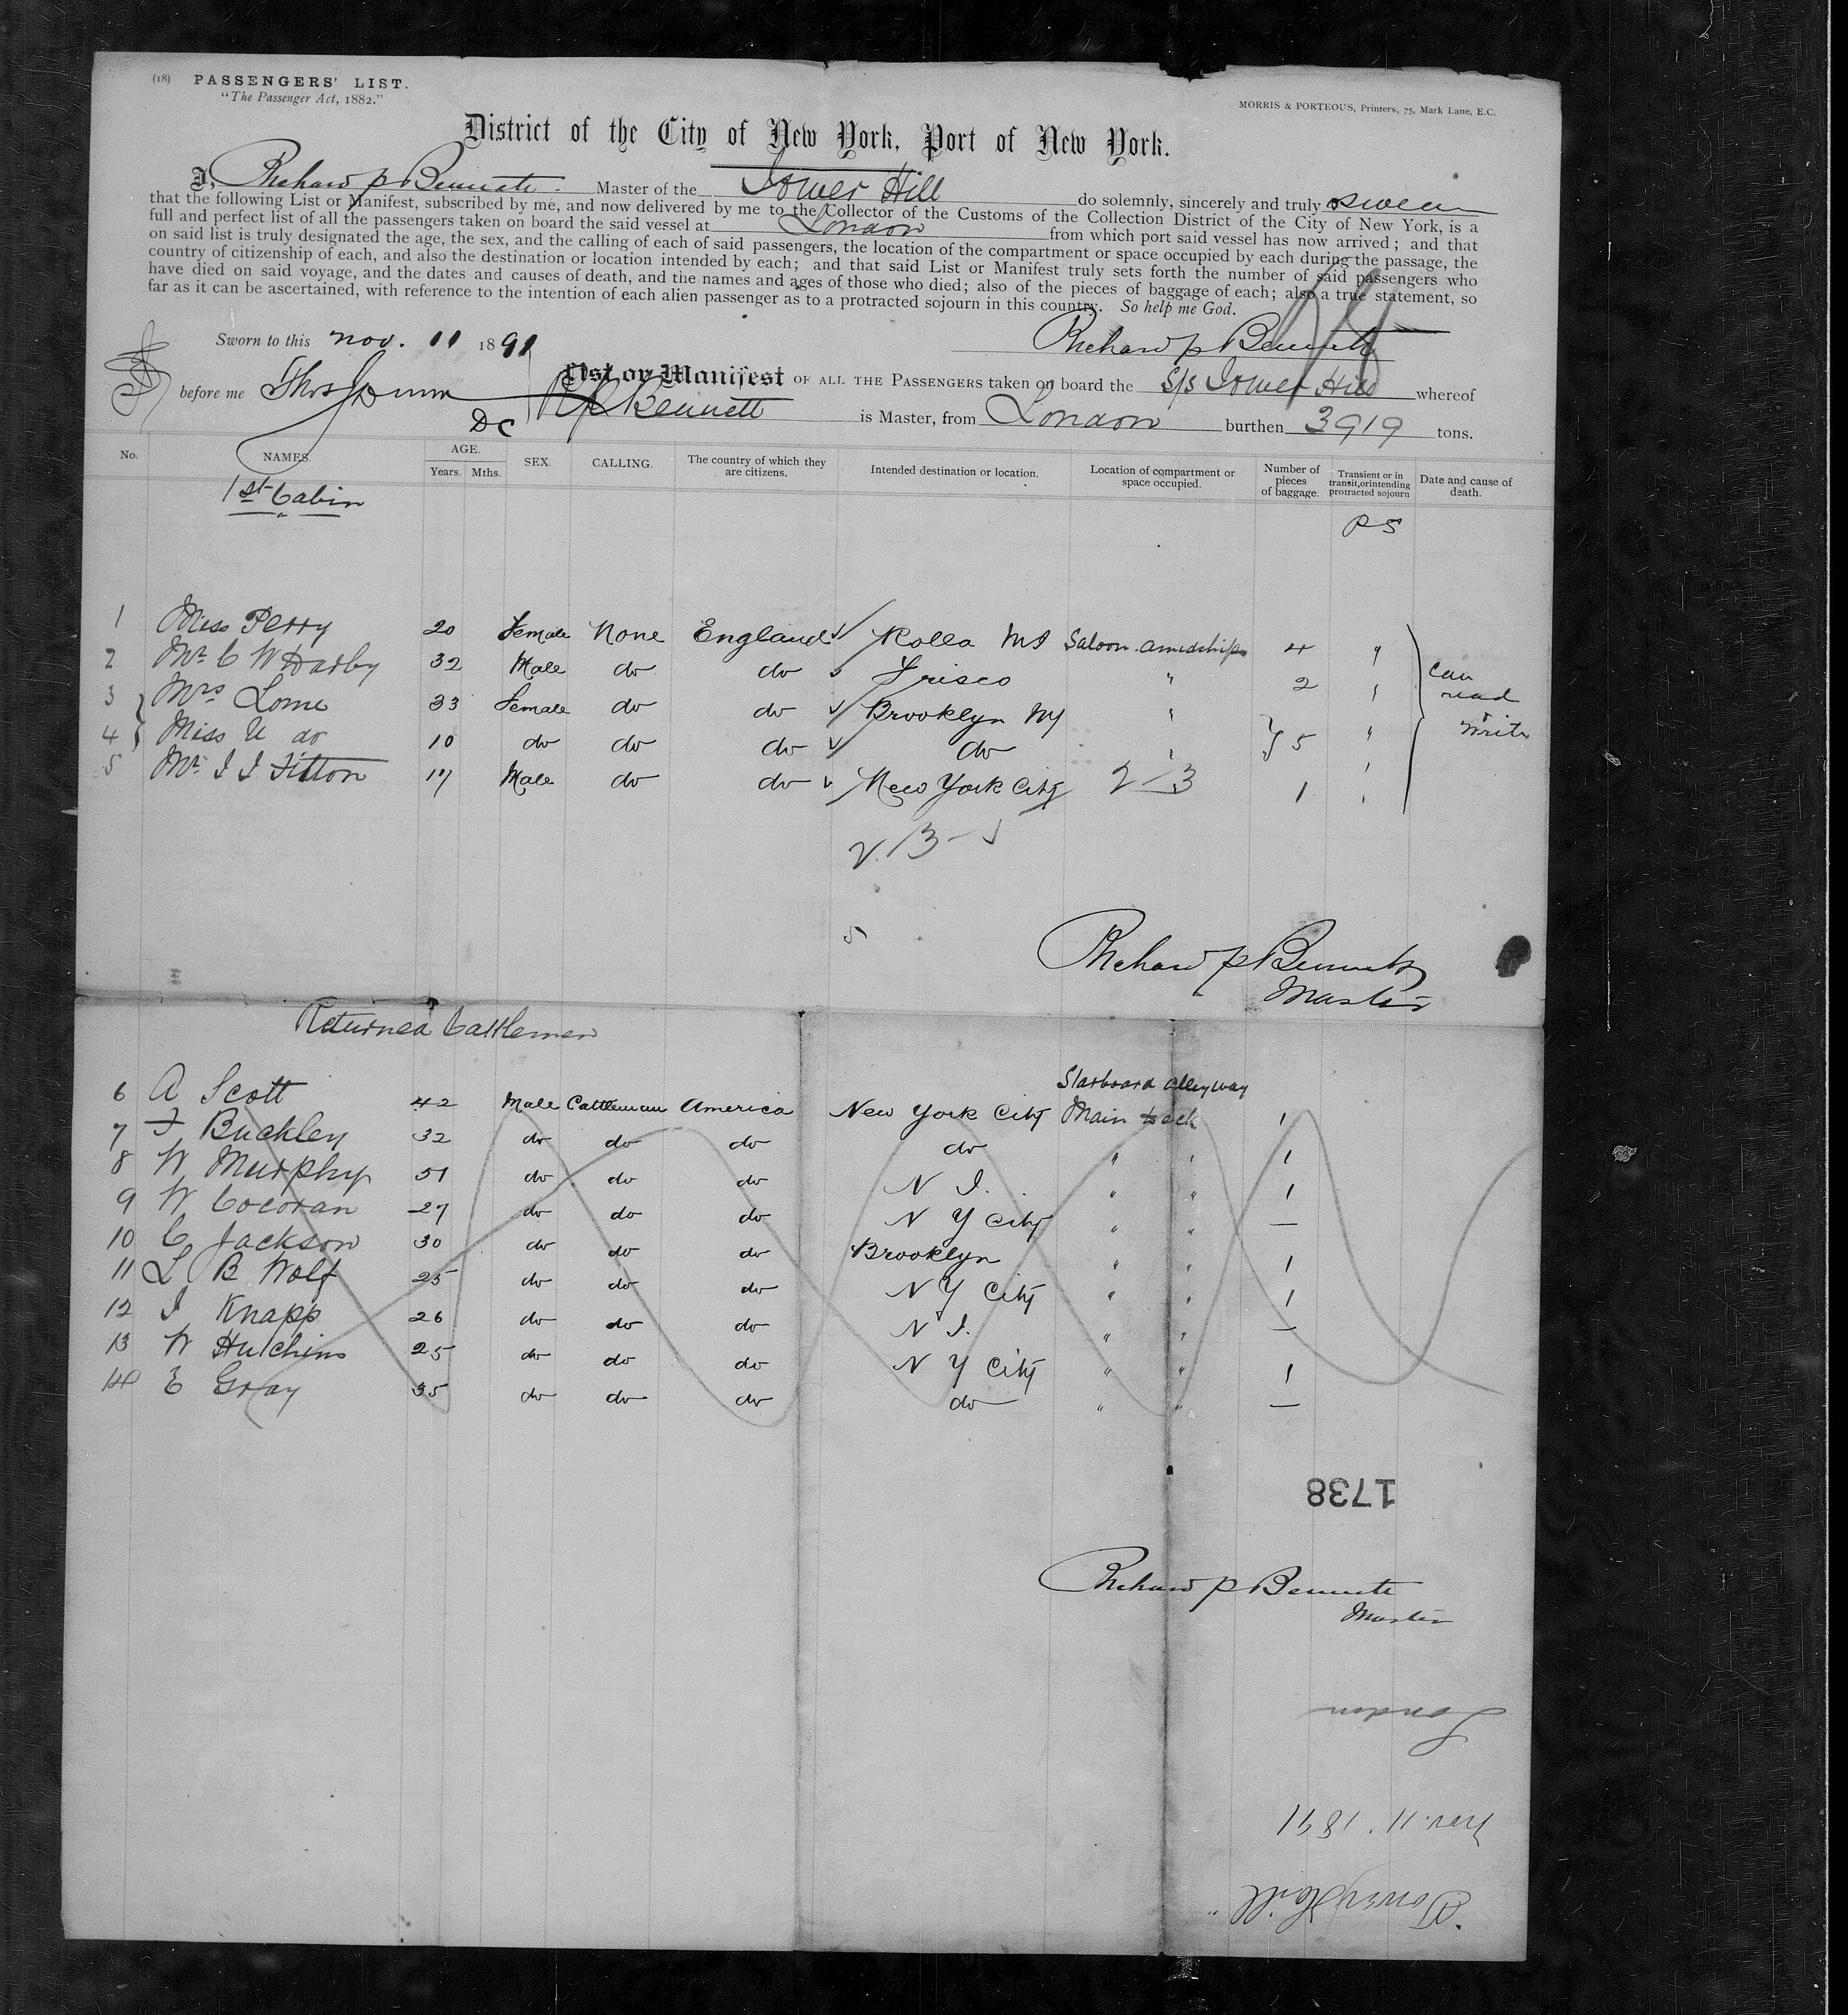 (18) PASSENGERS' LIST.
"The Passenger Act, 1882."
MORRIS & PORTEOUS, Printers, 75, Mark Lane, E.C.
District of the City of New York, Port of New York.
I, Richard P Bennett Master of the Tower Hill do solemnly, sincerely and truly swear
that the following List or Manifest, subscribed by me, and now delivered by me to the Collector of the Customs of the Collection District of the City of New York, is a
full and perfect list of all the passengers taken on board the said vessel at London from which port said vessel has now arrived; and that
on said list is truly designated the age, the sex, and the calling of each of said passengers, the location of the compartment or space occupied by each during the passage, the
country of citizenship of each, and also the destination or location intended by each; and that said List or Manifest truly sets forth the number of said passengers who
have died on said voyage, and the dates and causes of death, and the names and ages of those who died; also of the pieces of baggage of each; also a true statement, so
far as it can be ascertained, with reference to the intention of each alien passenger as to a protracted sojourn in this country. So help me God.
Sworn to this Nov. 11 1891 Richard P Bennett
before me Thos J Dunn DC
List or Manifest OF ALL THE PASSENGERS taken on board the S/S Tower Hill whereof
R P Bennett is Master, from London burthen 3919 tons.
No. NAMES. AGE. Years. Mths. SEX. CALLING. The country of which they are citizens. Intended destination or location. Location of compartment or space occupied. Number of pieces of baggage. Transient or in transit, or intending protracted sojourn Date and cause of death.
1st Cabin
P S
1 Miss Perry 20 Female None England Rolla Saloon amidships 4 "
2 Mr C W Darby 32 Male do do Frisco " 2 "
3 Mrs Lome 33 Female do do Brooklyn NY " "
4 Miss U do 10 do do do do " 5 "
5 Mr J J Fitton 17 Male do do New York City 2-3 1 "
can read & write
5
Richard P Bennett
Master
Returned Cattlemen
Starboard alleyway
6 A Scott 42 Male Cattleman America New York City Main deck 1
7 F Buckley 32 do do do do " " 1
8 W Murphy 51 do do do N J. " " 1
9 W Cocoran 27 do do do N Y City " " —
10 C Jackson 30 do do do Brooklyn " " 1
11 L B Wolf 25 do do do N Y City " " 1
12 J Knapp 26 do do do N J. " " —
13 W Hutchins 25 do do do N Y City " " 1
14 E Gray 35 do do do do " " —
1738
Richard P Bennett
Master
London
Nov. 11. 1891
"Tower Hill"